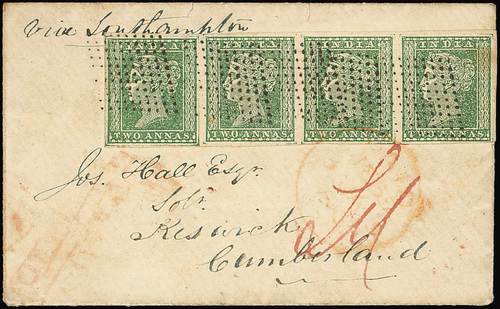 via Southampton
INDIA INDIA INDIA INDIA
TWO ANNAS TWO ANNAS TWO ANNAS TWO ANNAS
Jos. Hall Esqr.
Solr.
Keswick
Cumberland